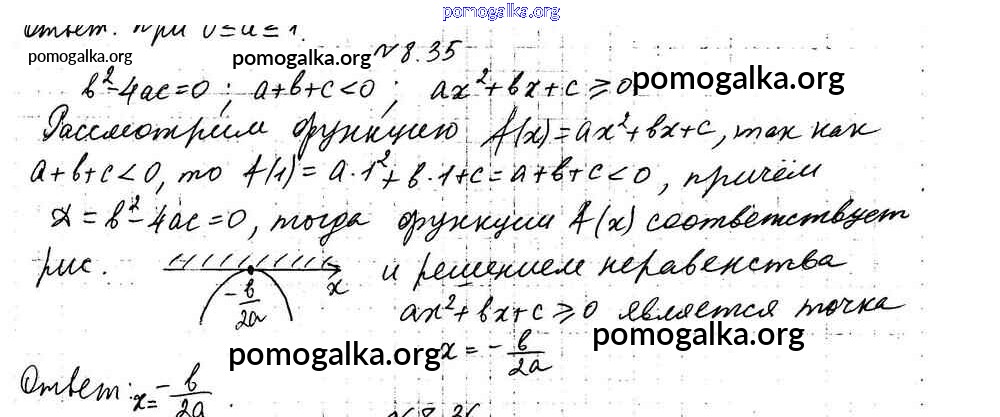 pomogalka.org
Ответ. при 0≤a≤1.
pomogalka.org pomogalka.org №8.35
b²-4ac=0; a+b+c<0; ax²+bx+c⩾0 pomogalka.org
Рассмотрим функцию f(x)=ax²+bx+c, так как
a+b+c<0, то f(1)=a·1²+b·1+c=a+b+c<0, причём
D=b²-4ac=0, тогда функции f(x) соответствует
рис. x и решением неравенства
-b/2a ax²+bx+c⩾0 является точка
pomogalka.org x=-b/2a pomogalka.org
Ответ: x=-b/2a.
pomogalka.org №8.36